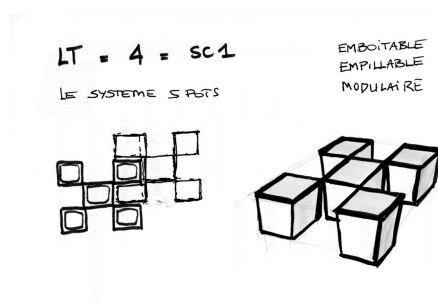 LT = 4 = SC1
LE SYSTEME 5 POTS
EMBOITABLE
EMPILLABLE
MODULAIRE